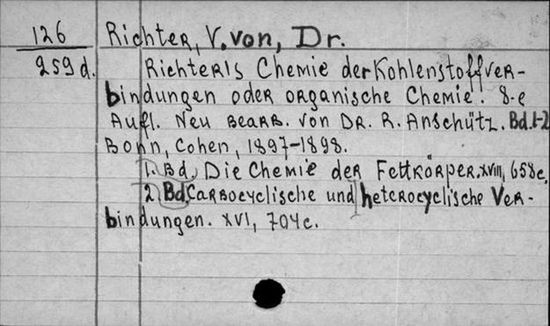 126
259d.
Richter, V. von, Dr.
Richter's Chemie der Kohlenstoffver-
bindungen oder organische Chemie. 8-e
Aufl. Neu bearb. von Dr. R. Anschütz. Bd. 1-2
Bonn, Cohen, 1897-1898.
1. Bd. Die Chemie der Fettkörper. XVIII, 658c.
2. Bd. Carbocyclische und heterocyclische Ver-
bindungen. XVI, 704c.